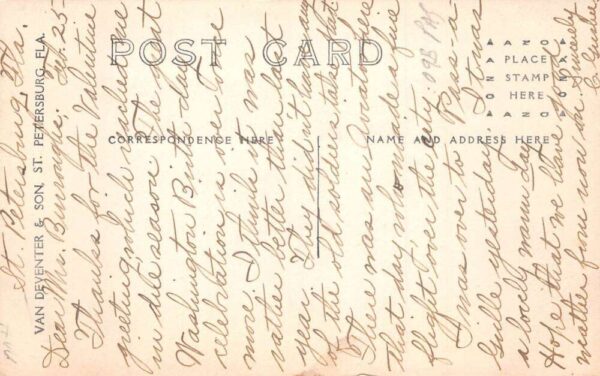 POST CARD
CORRESPONDENCE HERE
NAME AND ADDRESS HERE
PLACE
STAMP
HERE
AZO
AZO
AZO
AZO
VAN DEVENTER & SON, ST. PETERSBURG, FLA.
St. Petersburg, Fla.
Dear Mrs. Burroughs: Feb. 25-
Thanks for the Valentine
greeting which reached
in due season. The great
Washington Birth-day
celebration is over once
more. I think it was
rather better than last
year. They didn't have any
of the old soldiers take that
There was an aviator here
that day who made a fine
flight over the city.
I was over to Pass-a-
Grille yesterday. It was
a lovely warm day.
Hope that we have good
weather from now on. Sincerely